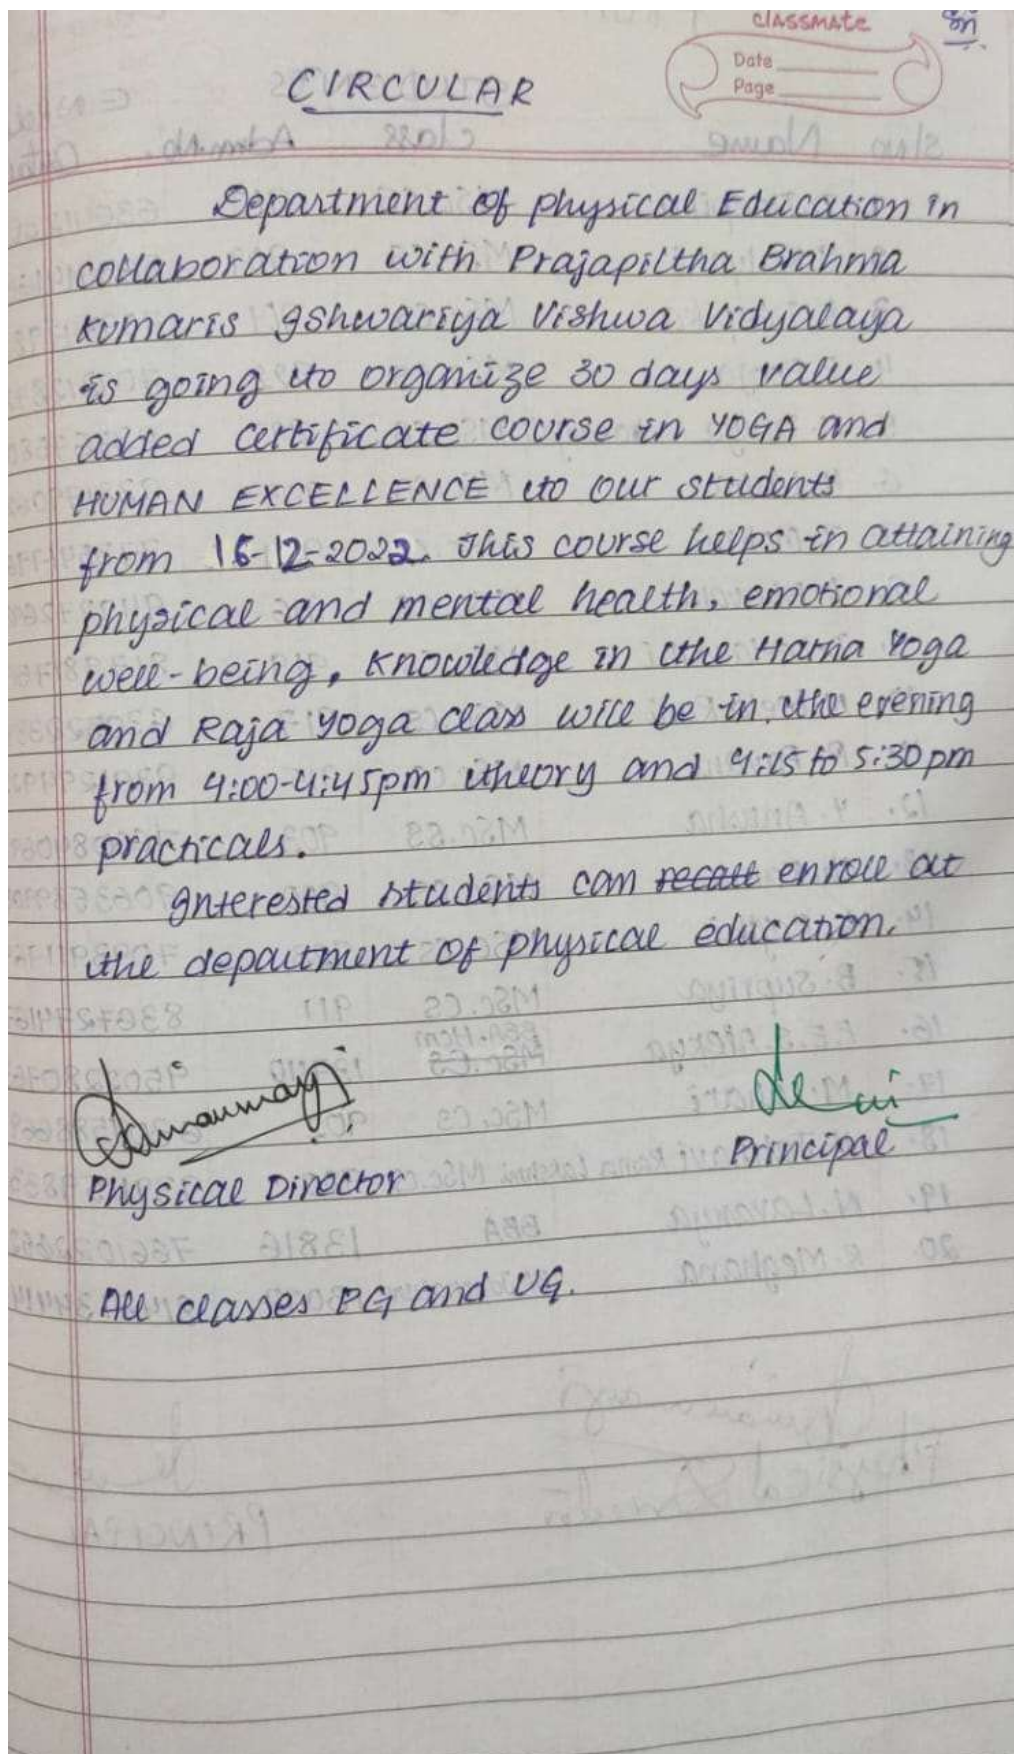 classmate
Date
Page
CIRCULAR
Department of physical Education in
collaboration with Prajapiltha Brahma
Kumaris Ishwariya Vishwa Vidyalaya
is going to organize 30 days value
added certificate course in YOGA and
HUMAN EXCELLENCE to our students
from 16-12-2022. This course helps in attaining
physical and mental health, emotional
well-being, knowledge in the Hatha Yoga
and Raja yoga class will be in the evening
from 4:00-4:45pm theory and 4:15 to 5:30pm
practicals.
Interested students can recall enroll at
the department of physical education.
Principal
Physical Director
All classes PG and UG.